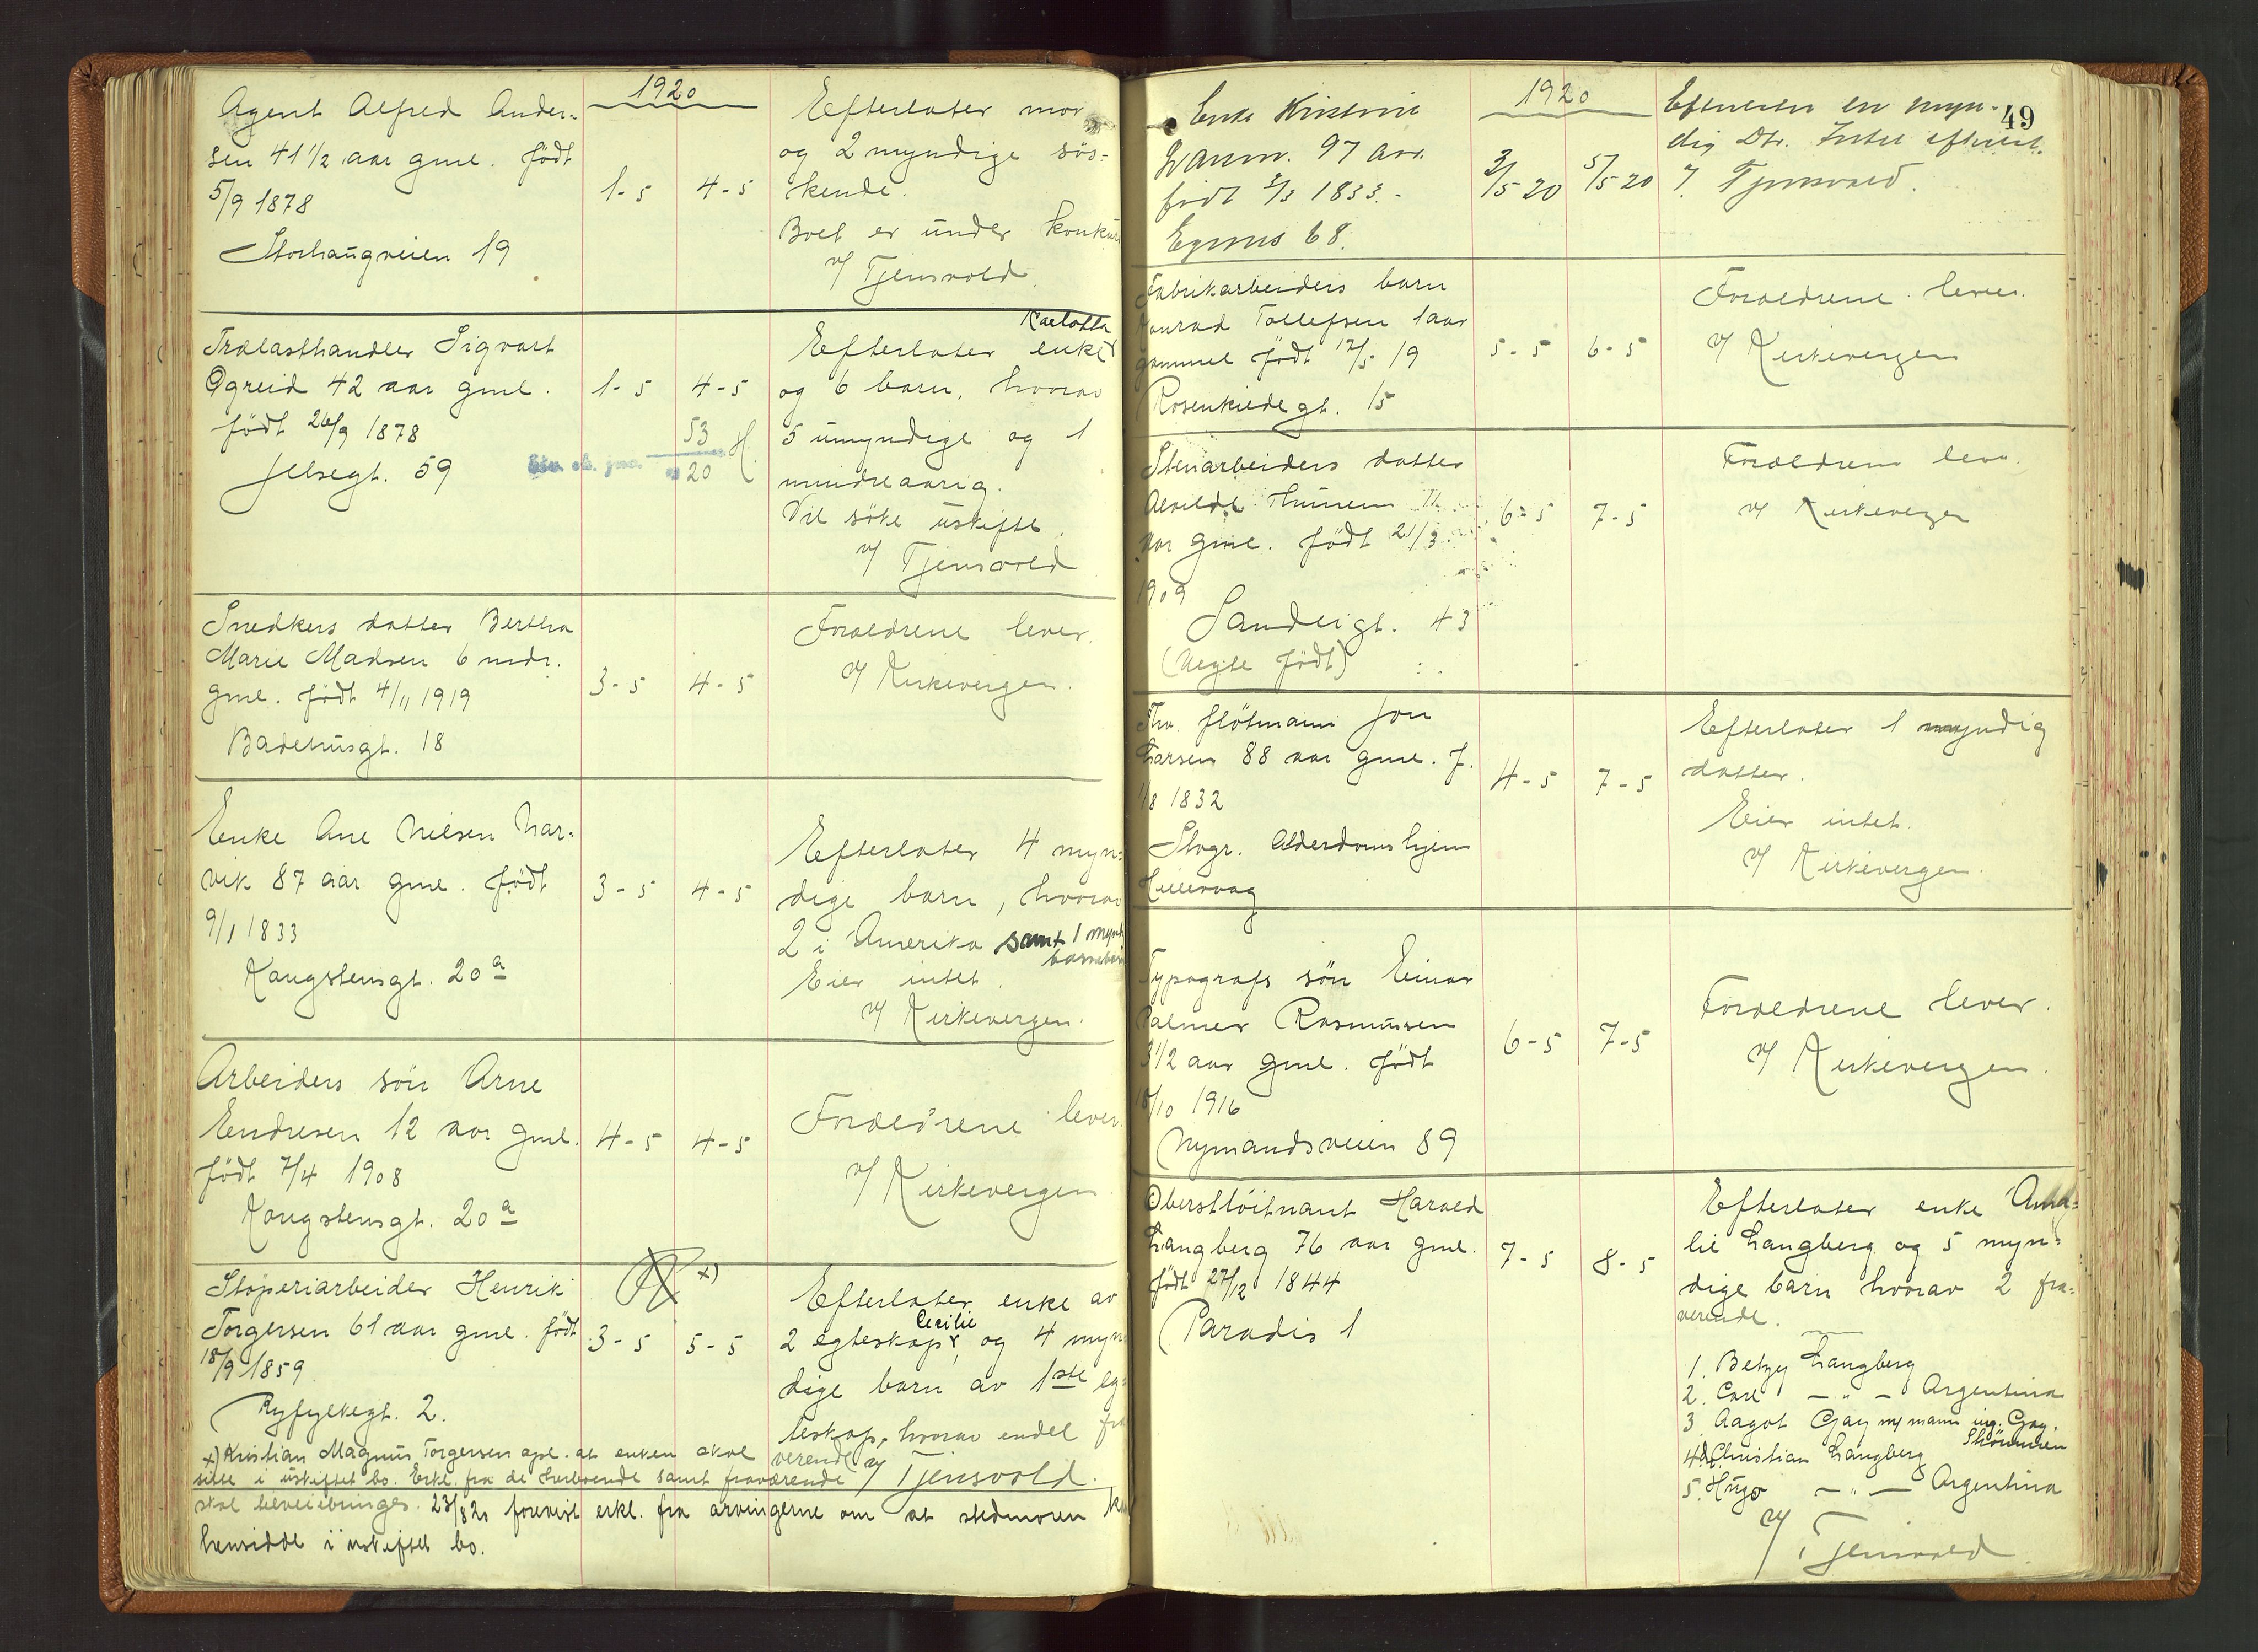 1920
Agent Alfred Ander-
sen 41 1/2 aar gml. födt
5/9 1878
Storhaugveien 19
1-5
4-5
Efterlater mor
og 2 myndige sös-
kende.
Boet er under konkurs
v/ Tjensvold.
Trælasthandler Sigvart
Ogreid 42 aar gml.
födt 26/9 1878
Jelsegt. 59
1-5
4-5
53
20
Karlotta
Efterlater enke
og 6 barn, hvorav
5 umyndige og 1
mindreaarig.
Vil söke uskifte
v/ Tjensvold
Snedkers datter Bertha
Marie Madsen 6 mdr.
gml. födt 4/11 1919
Badehusgt. 18
3-5
4-5
Forældrene lever.
v/ Kirkevergen.
Enke Ane Nielsen Nar-
vik 87 aar gml. födt
9/1 1833
Kongstensgt. 20a
3-5
4-5
Efterlater 4 myn-
dige barn, hvorav
2 i Amerika samt 1 mynd
barnebarn
Eier intet.
v/ Kirkevergen.
Arbeiders sön Arne
Endresen 12 aar gml.
födt 7/4 1908
Kongstensgt. 20a
4-5
4-5
Forældrene lever.
v/ Kirkevergen
Stöperiarbeider Henrik
Torgersen 61 aar gml. födt
18/9 1859
Ryfylkegt. 2.
x)
3-5
5-5
Efterlater enke av
Cecilie
2 egteskap, og 4 myn-
dige barn av 1ste eg-
teskap, hvorav endel fra
verende
v/ Tjensvold.
x) Kristian Magnus Torgersen opl. at enken skal
sitte i uskiftet bo. Erkl. fra de herboende samt fraværende
skal tilveiebringes. 23/8 20 forevist erkl. fra arvingerne om at stedmoren kan
hensidde i uskiftet bo.
49
1920
Enke Kristine
97 aar.
födt 2/3 1833.-
Egenes 68.
3/5 20
5/5 20
Efterlater en myn-
dig Dtr. Intet efterlat.
v/ Tjensvold.
Fabrikarbeiders barn
Konrad Tollefsen 1 aar
gammel födt 12/5 19
Rosenkildegt. 15
5-5
6-5
Forældrene lever.
v/ Kirkevergen
Stenarbeiders datter
Alvilde Thunem 11
aar gml. födt 21/3
1909
Sandeigt. 43
(Uegte födt)
6-5
7-5
Forældrene lever.
v/ Kirkevergen
Fhv. flötmann Jon
Larsen 88 aar gml. f.
1/8 1832
Stvgr. Alderdomshjem
Hillevaag
4-5
7-5
Efterlater 1 myndig
datter.
Eier intet.
v/ Kirkevergen.
Typografs sön Einar
Palmer Rasmussen
3 1/2 aar gml. födt
18/10 1916
Nymandsveien 89
6-5
7-5
Forældrene lever.
v/ Kirkevergen.
Oberstlöitnant Harald
Langberg 76 aar gml.
födt 27/12 1844
Paradis 1
7-5
8-5
Efterlater enke Ama-
lie Langberg og 5 myn-
dige barn hvorav 2 fra-
verende.
1. Betzy Langberg
2. Carl — " — Argentina
3. Aagot Gay m/ mann ing. Gay.
Strömmen
4. Christian Langberg
5. Hugo — " — Argentina
v/ Tjensvold.